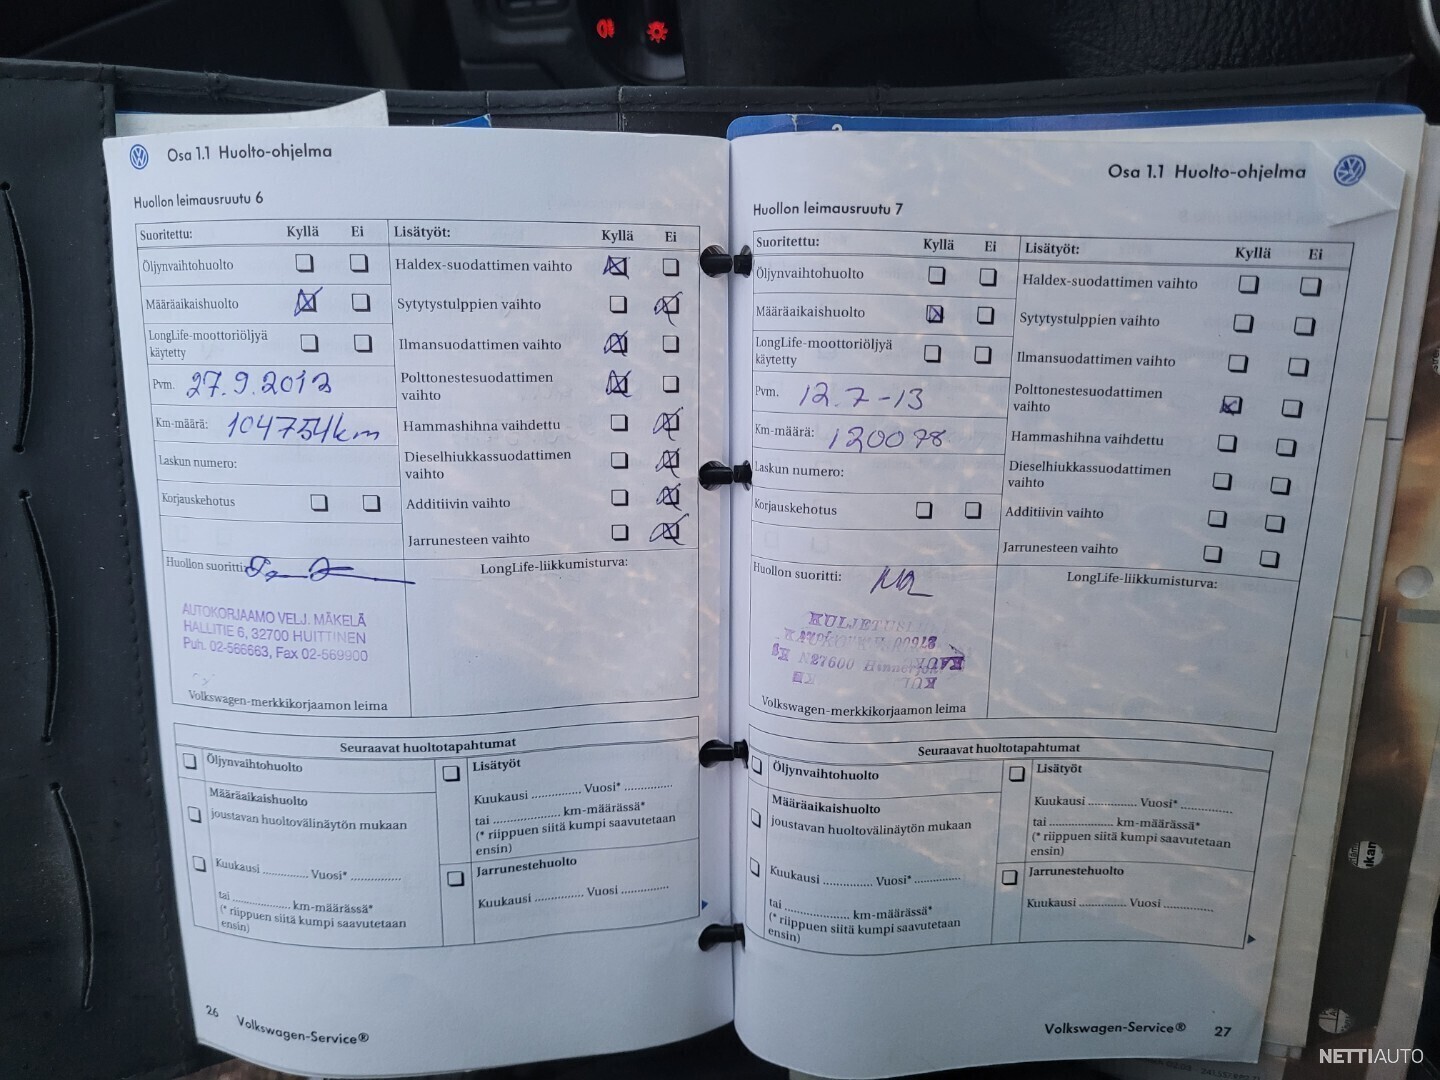 Osa 1.1 Huolto-ohjelma
Huollon leimausruutu 6
Suoritettu: Kyllä Ei
Öljynvaihtohuolto
Määräaikaishuolto
LongLife-moottoriöljyä
käytetty
Pvm. 27.9.2012
Km-määrä: 104754km
Laskun numero:
Korjauskehotus
Huollon suoritti:
AUTOKORJAAMO VELJ. MÄKELÄ
HALLITIE 6, 32700 HUITTINEN
Puh. 02-566663, Fax 02-569900
Volkswagen-merkkikorjaamon leima
Lisätyöt: Kyllä Ei
Haldex-suodattimen vaihto
Sytytystulppien vaihto
Ilmansuodattimen vaihto
Polttonestesuodattimen
vaihto
Hammashihna vaihdettu
Dieselhiukkassuodattimen
vaihto
Additiivin vaihto
Jarrunesteen vaihto
LongLife-liikkumisturva:
Seuraavat huoltotapahtumat
Öljynvaihtohuolto
Määräaikaishuolto
joustavan huoltovälinäytön mukaan
Kuukausi .............. Vuosi* ...............
tai .................. km-määrässä*
(* riippuen siitä kumpi saavutetaan
ensin)
Lisätyöt
Kuukausi .............. Vuosi* ...............
tai .................... km-määrässä*
(* riippuen siitä kumpi saavutetaan
ensin)
Jarrunestehuolto
Kuukausi .............. Vuosi ..............
26 Volkswagen-Service®
Osa 1.1 Huolto-ohjelma
Huollon leimausruutu 7
Suoritettu: Kyllä Ei
Öljynvaihtohuolto
Määräaikaishuolto
LongLife-moottoriöljyä
käytetty
Pvm. 12.7-13
Km-määrä: 120098
Laskun numero:
Korjauskehotus
Huollon suoritti:
Volkswagen-merkkikorjaamon leima
Lisätyöt: Kyllä Ei
Haldex-suodattimen vaihto
Sytytystulppien vaihto
Ilmansuodattimen vaihto
Polttonestesuodattimen
vaihto
Hammashihna vaihdettu
Dieselhiukkassuodattimen
vaihto
Additiivin vaihto
Jarrunesteen vaihto
LongLife-liikkumisturva:
Seuraavat huoltotapahtumat
Öljynvaihtohuolto
Määräaikaishuolto
joustavan huoltovälinäytön mukaan
Kuukausi .............. Vuosi* ..............
tai .................. km-määrässä*
(* riippuen siitä kumpi saavutetaan
ensin)
Lisätyöt
Kuukausi .............. Vuosi* ...............
tai .................... km-määrässä*
(* riippuen siitä kumpi saavutetaan
ensin)
Jarrunestehuolto
Kuukausi .............. Vuosi ..............
Volkswagen-Service® 27
NETTIAUTO